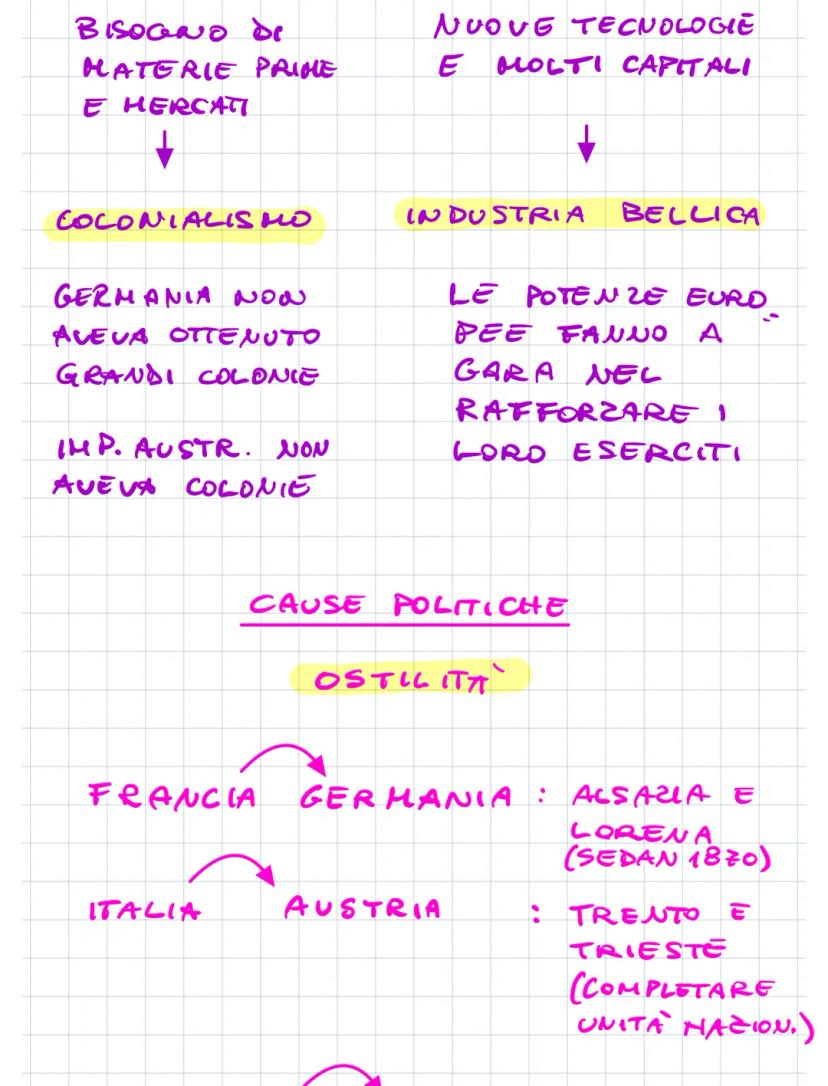 BISOGNO DI
MATERIE PRIME
E MERCATI
COLONIALISMO
GERMANIA NON
AVEVA OTTENUTO
GRANDI COLONIE
IMP. AUSTR. NON
AVEVA COLONIE
NUOVE TECNOLOGIE
E MOLTI CAPITALI
INDUSTRIA BELLICA
LE POTENZE EURO
PEE FANNO A
GARA NEL
RAFFORZARE I
LORO ESERCITI
CAUSE POLITICHE
OSTILITÀ
FRANCIA GERMANIA : ALSAZIA E
LORENA
(SEDAN 1870)
ITALIA AUSTRIA : TRENTO E
TRIESTE
(COMPLETARE
UNITÀ NAZION.)